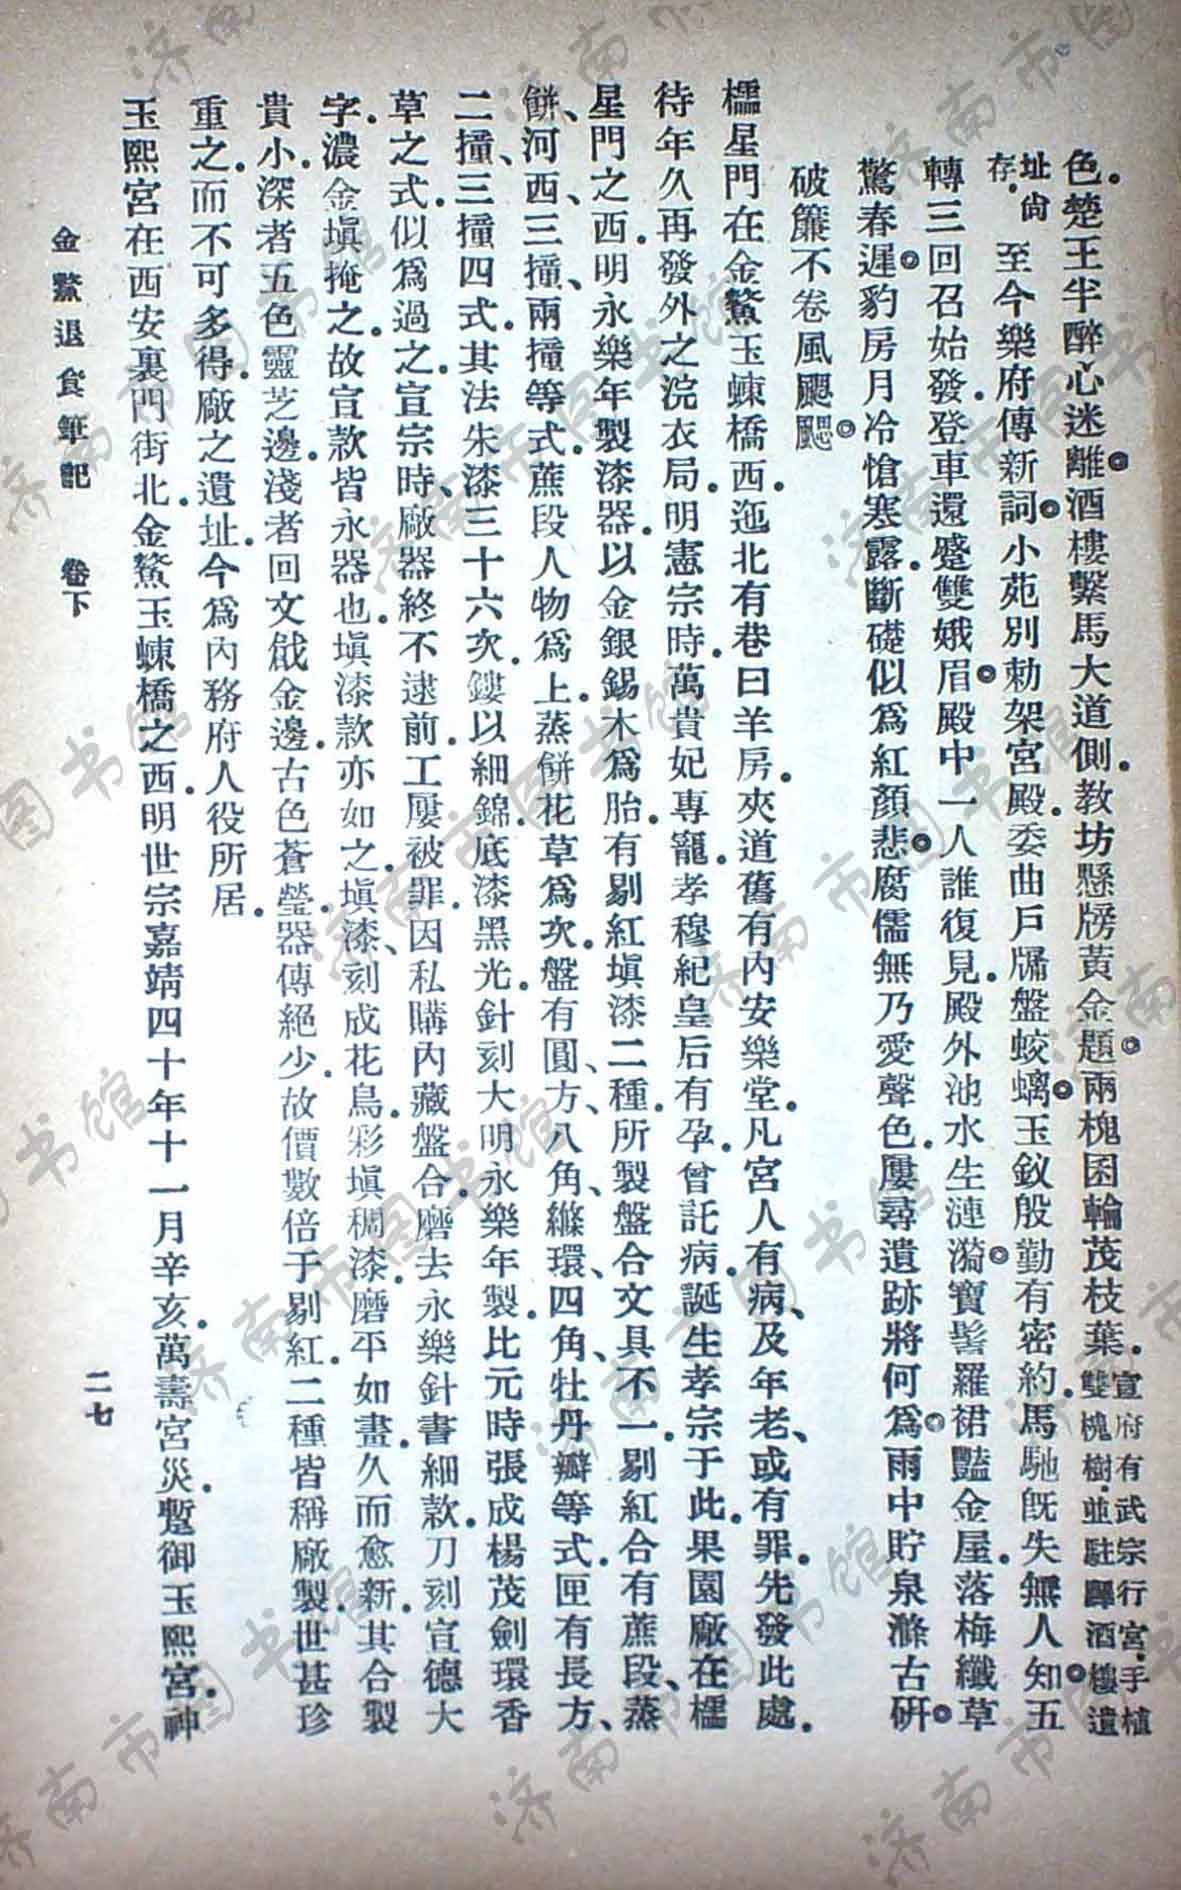 色。楚王半醉心迷離。酒樓繫馬大道側。教坊懸牓黃金題。兩槐囷輪茂枝葉。宣府有武宗行宮。手植雙槐樹。並駐蹕酒樓。遺
址尙存。至今樂府傳新詞。小苑別勅架宮殿。委曲戶牖盤蛟螭。玉釵殷勤有密約。馬馳旣失無人知。五
轉三回召始發。登車還蹙雙娥眉。殿中一人誰復見。殿外池水生漣漪。寶髻羅裙豔金屋。落梅纖草
驚春遲。豹房月冷愴寒露。斷礎似爲紅顏悲。腐儒無乃愛聲色。屢尋遺跡將何爲。雨中貯泉滌古硏。
破簾不卷風颸颸。
櫺星門在金鰲玉蝀橋西。迤北有巷曰羊房。夾道舊有內安樂堂。凡宮人有病、及年老、或有罪。先發此處。
待年久再發外之浣衣局。明憲宗時。萬貴妃專寵。孝穆紀皇后有孕。曾託病。誕生孝宗于此。果園廠在櫺
星門之西。明永樂年製漆器。以金銀錫木爲胎。有剔紅塡漆二種。所製盤合文具不一。剔紅合有蔗段、蒸
餅、河西、三撞、兩撞等式。蔗段人物爲上。蒸餅花草爲次。盤有圓、方、八角、縧環、四角、牡丹瓣等式。匣有長方、
二撞、三撞四式。其法朱漆三十六次。鏤以細錦。底漆黑光。針刻大明永樂年製。比元時張成楊茂劍環香
草之式。似爲過之。宣宗時、廠器終不逮前。工屢被罪。因私購內藏盤合。磨去永樂針書細款。刀刻宣德大
字。濃金塡掩之。故宣款皆永器也。塡漆款亦如之。塡漆、刻成花鳥。彩塡稠漆。磨平如畫。久而愈新。其合製
貴小。深者五色靈芝邊。淺者回文戧金邊。古色蒼瑩。器傳絕少。故價數倍于剔紅。二種皆稱廠製。世甚珍
重之。而不可多得。廠之遺址。今爲內務府人役所居。
玉熙宮在西安裏門街北。金鰲玉蝀橋之西。明世宗嘉靖四十年十一月辛亥。萬壽宮災。暫御玉熙宮。神
金鰲退食筆記 卷下 二七